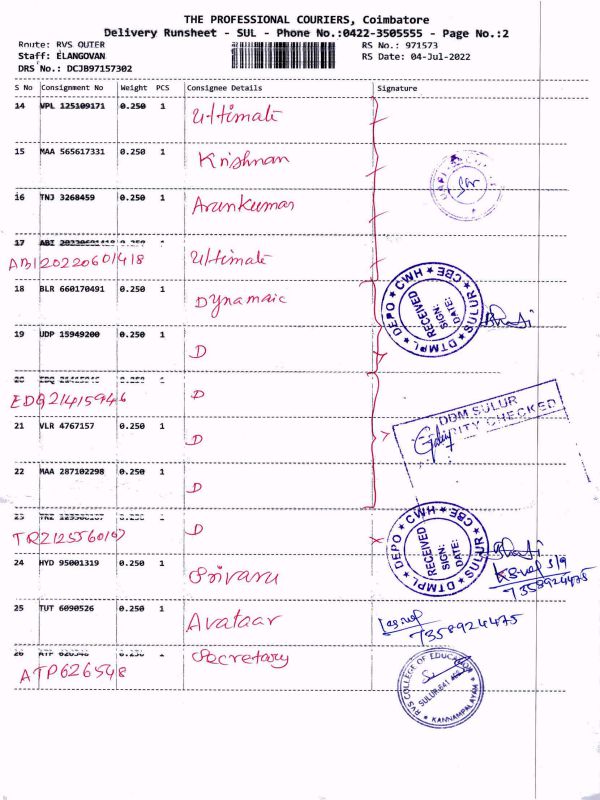 THE PROFESSIONAL COURIERS, Coimbatore
Delivery Runsheet - SUL - Phone No.:0422-3505555 - Page No.:2
Route: RVS OUTER RS No.: 971573
Staff: ELANGOVAN RS Date: 04-Jul-2022
DRS No.: DCJB97157302
S No Consignment No Weight PCS Consignee Details Signature
14 VPL 125109171 0.250 1 Ultimate
15 MAA 565617331 0.250 1 Krishnan
16 TNJ 3268459 0.250 1 Arunkumar
17 ABI 20220601418 0.250 1
ABI20220601418 Ultimate
18 BLR 660170491 0.250 1 Dynamaic
DEPO * CWH * CBE * SULUR * DTMPL
RECEIVED
SIGN:
DATE:
19 UDP 15949200 0.250 1 D
20 EDQ 21415946 0.250 1 D
EDQ21415946
DDM SULUR
SECURITY CHECKED
21 VLR 4767157 0.250 1 D
22 MAA 287102298 0.250 1 D
23 TRZ 125560167 0.250 1 D
TRZ125560167
DEPO * CWH * CBE * SULUR * DTMPL
RECEIVED
SIGN:
DATE:
24 HYD 95001319 0.250 1 Srivaru
7358924475
25 TUT 6090526 0.250 1 Avataar
7358924475
26 ATP 626548 0.250 1 Secretary
ATP626548
RVS COLLEGE OF EDUCATION
SULUR-641 402
KANNAMPALAYAM